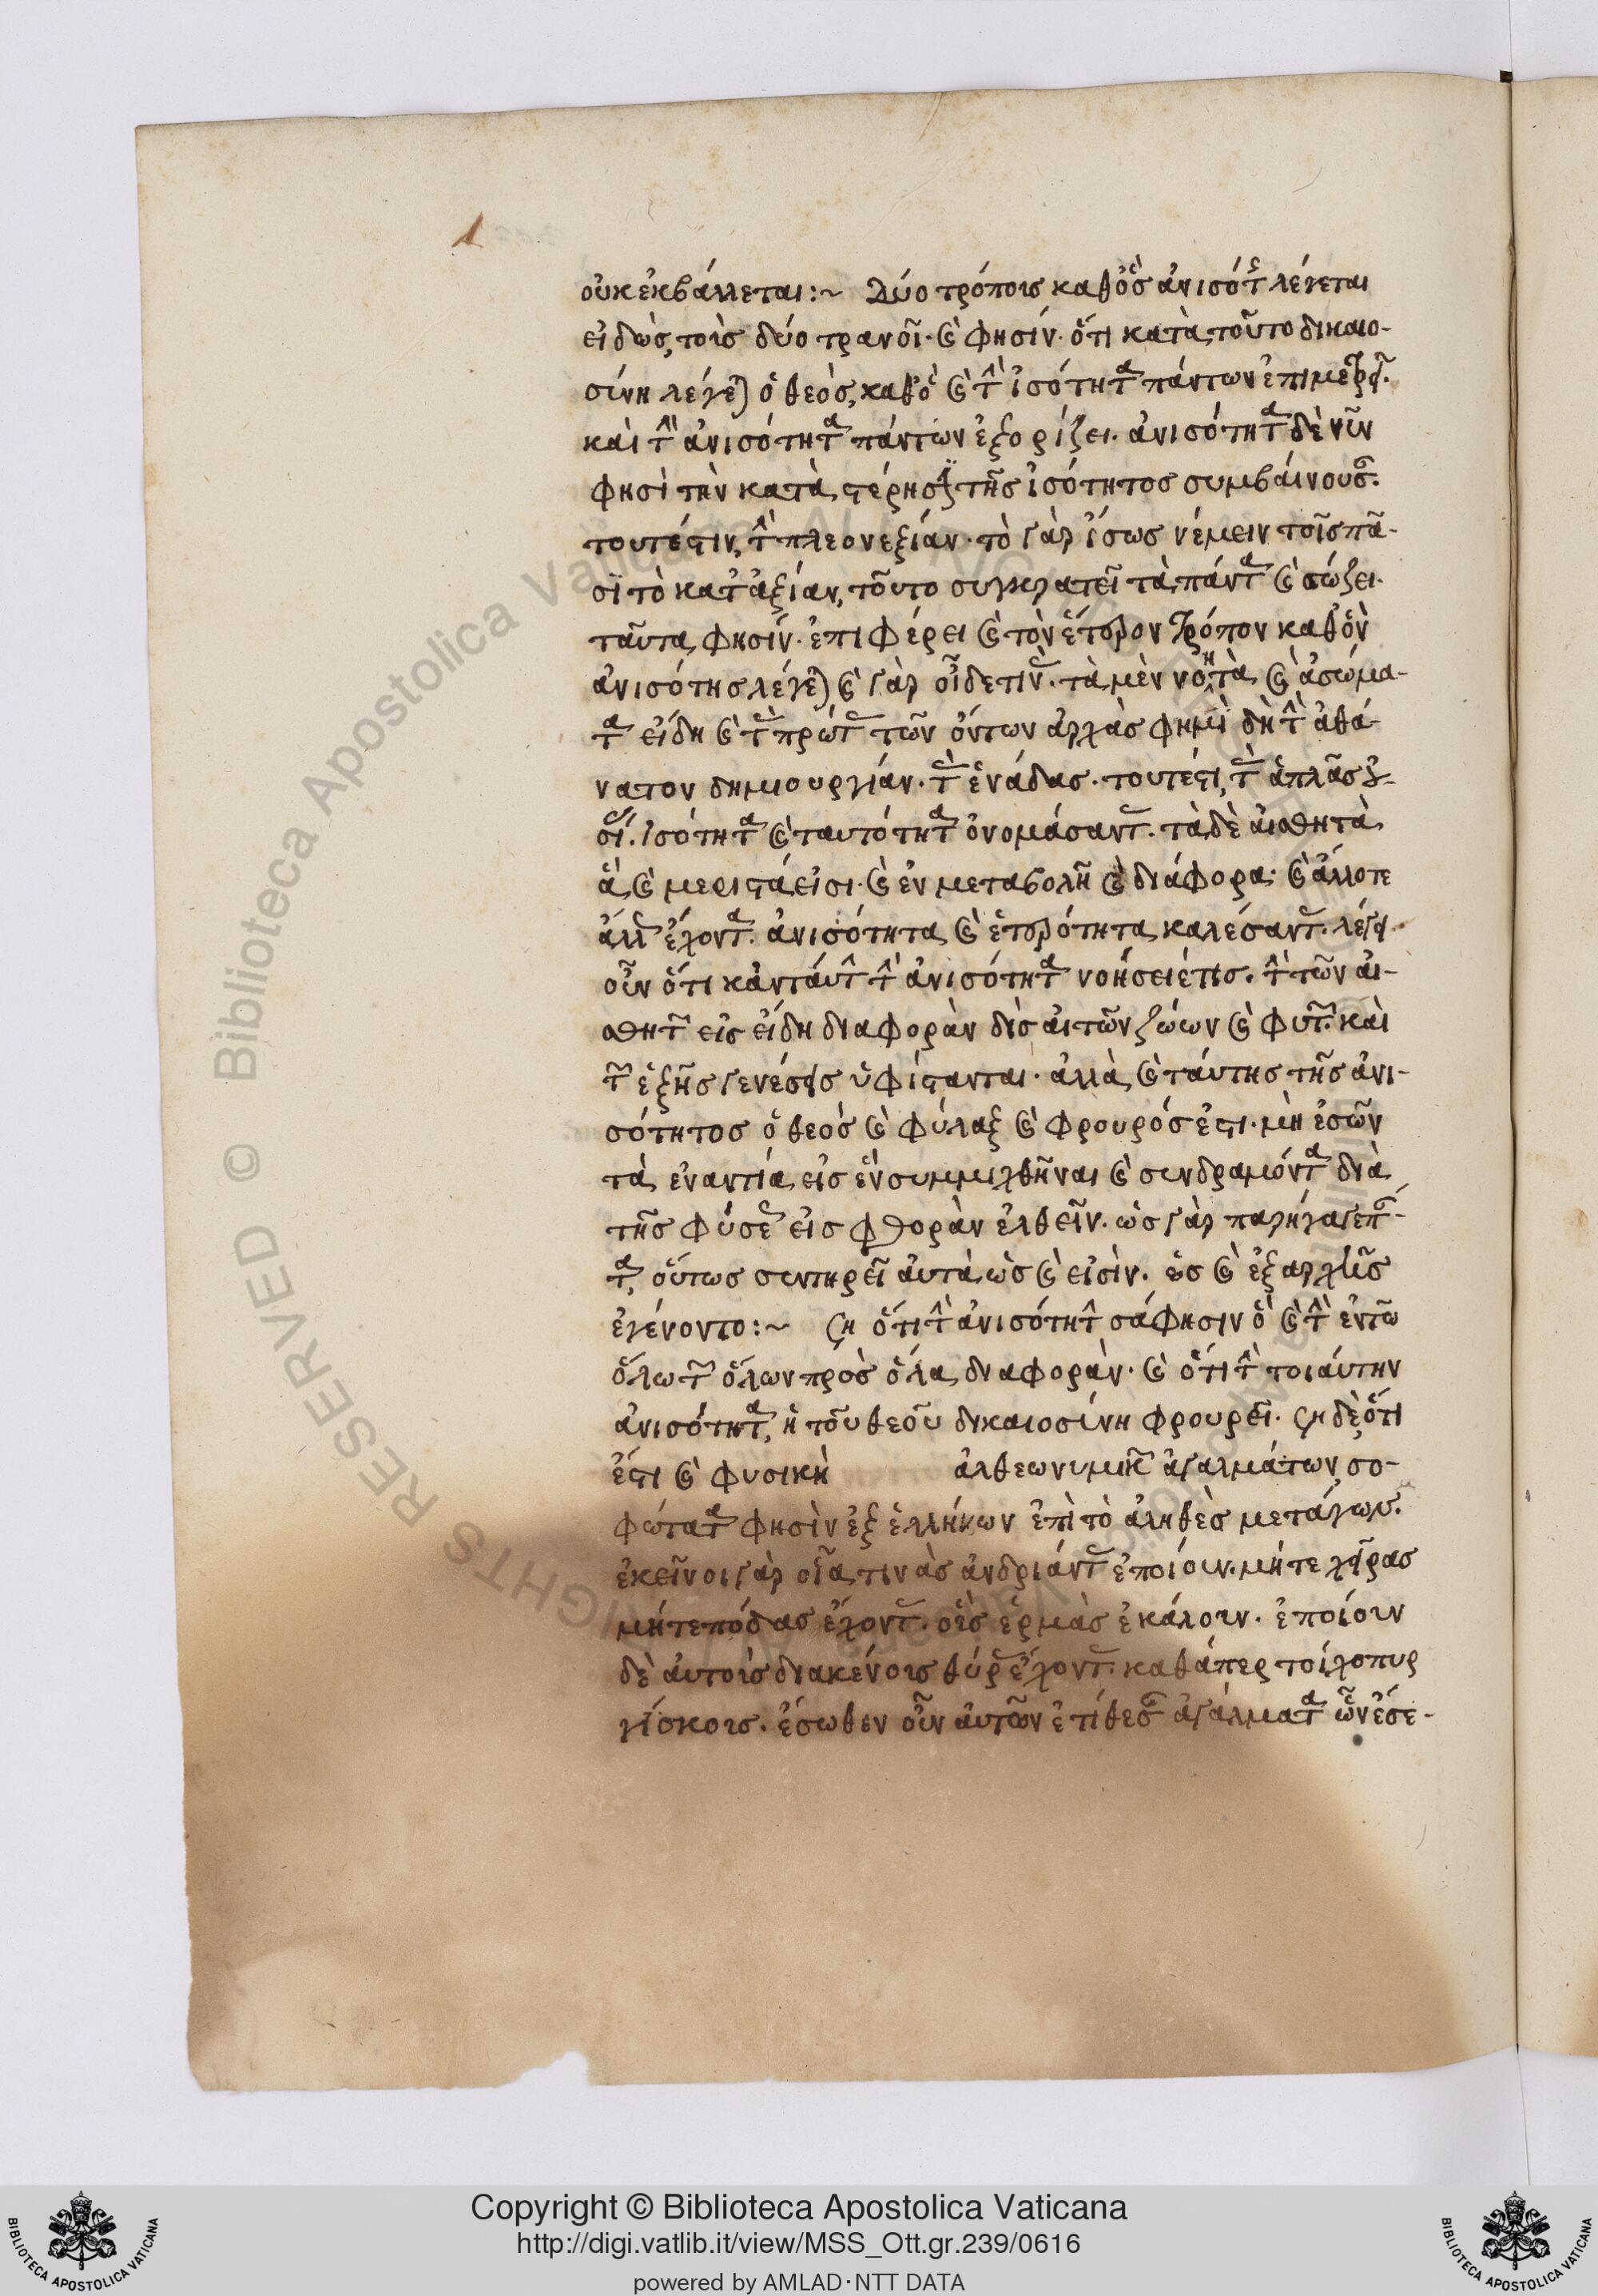 1
οὐκ ἐκβάλλεται:~ Δύο τρόποις καθ' οὓς ἀνισότης λέγεται
εἰδὼς, τοὺς δύο τρανοῖ· καὶ φησίν· ὅτι κατὰ τοῦτο δικαιο-
σύνη λέγεται ὁ θεὸς, καθὸ καὶ τὴν ἰσότητα πάντων
καὶ τὴν ἀνισότητα πάντων ἐξορίζει. ἀνισότητα δὲ νῦν
φησὶ τὴν κατὰ στέρησιν τῆς ἰσότητος συμβαίνουσαν.
τουτέστιν, τὴν πλεονεξίαν· τὸ γὰρ ἴσως νέμειν τοῖς πᾶ-
σι τὸ κατ' ἀξίαν, τοῦτο συγκρατεῖ τὰ πάντα καὶ σώζει.
ταῦτα φησίν· ἐπιφέρει καὶ τὸν ἕτερον τρόπον καθ' ὃν
ἀνισότης λέγεται καὶ γὰρ οἶδε τινὰς· τὰ μὲν νοητὰ καὶ ἀσώμα-
τα εἴδη καὶ τὰς πρώτας τῶν ὄντων ἀρχὰς φημὶ δὴ τὴν ἀθά-
νατον δημιουργίαν· τὰς ἑνάδας· τουτέστι, τὰς ἁπλᾶς
ἰσότητα καὶ ταυτότητα ὀνομάσαντας· τὰ δὲ αἰσθητὰ
ἃ καὶ μεριστά εἰσι· καὶ ἐν μεταβολῇ καὶ διάφορα· καὶ ἄλλοτε
ἄλλως ἔχοντα. ἀνισότητα καὶ ἑτερότητα καλέσαντας. λέγει
οὖν ὅτι κἀνταῦθα τὴν ἀνισότητα νοήσειέ τις· τὴν τῶν αἰ-
σθητῶν εἰς εἴδη διαφορὰν δι' ἧς αἱ τῶν ζώων καὶ φυτῶν· καὶ
τῶν ἑξῆς γενέσεις ὑφίστανται· ἀλλὰ καὶ ταύτης τῆς ἀνι-
σότητος ὁ θεὸς καὶ φύλαξ καὶ φρουρός ἐστι· μὴ ἐῶν
τὰ ἐναντία εἰς ἓν συμμιχθῆναι καὶ συνδραμόντα διὰ
τῆς φύσεως εἰς φθορὰν ἐλθεῖν· ὡς γὰρ παρήγαγεν
τὰ, οὕτως συντηρεῖ αὐτὰ ὡς καὶ εἰσίν· ὡς καὶ ἐξ ἀρχῆς
ἐγένοντο:~ ση ὅτι τὴν ἀνισότητα σάφησιν ὃ καὶ τὴν ἐν τῶ
ὅλω τῶν ὅλων πρὸς ὅλα διαφορὰν· καὶ ὅτι τὴν τοιαύτην
ἀνισότητα, ἡ τοῦ θεοῦ δικαιοσύνη φρουρεῖ· ση δὲ ὅτι
ἔστι καὶ φυσικὴ ἀλθεωνυμικῶν ἀγαλμάτων, σο-
φώτατα φησὶν ἐξ ἑλλήνων ἐπὶ τὸ ἀληθὲς μετάγων.
ἐκεῖνοι γὰρ οἷά τινας ἀνδριάντας ἐποίουν· μήτε χεῖρας
μήτε πόδας ἔχοντας· οὓς ἑρμᾶς ἐκάλουν· ἐποίουν
δὲ αὐτοὺς διακένους θύρας ἔχοντας· καθάπερ τοιχοπυρ
γίσκους· ἔσωθεν οὖν αὐτῶν ἐτίθεσαν ἀγάλματα ὧν ἔσε-
© Biblioteca Apostolica Vaticana
RIGHTS RESERVED
BIBLIOTECA APOSTOLICA VATICANA
Copyright © Biblioteca Apostolica Vaticana
http://digi.vatlib.it/view/MSS_Ott.gr.239/0616
powered by AMLAD·NTT DATA
BIBLIOTECA APOSTOLICA VATICANA